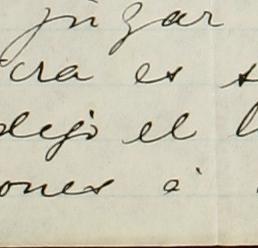 juzgar
cra es s
dejo el l
ones á